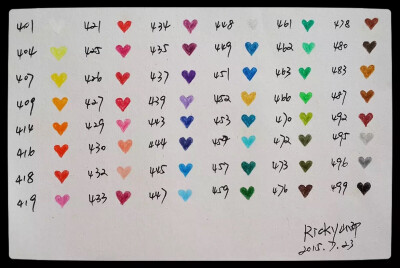 401 421 434 448 461 478
404 425 435 449 462 480
407 426 437 451 463 483
409 427 439 452 466 487
414 429 443 453 470 492
416 430 444 454 472 495
418 432 445 457 473 496
419 433 447 459 476 499
2015.7.23